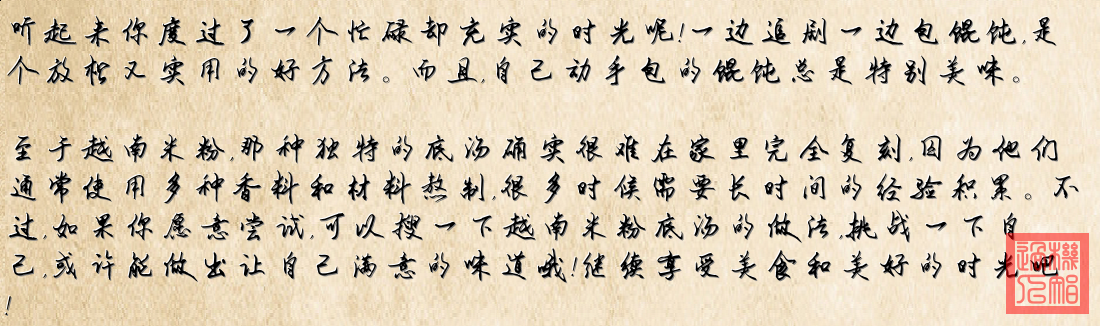 听起来你度过了一个忙碌却充实的时光呢!一边追剧一边包馄饨,是
个放松又实用的好方法。而且,自己动手包的馄饨总是特别美味。
至于越南米粉,那种独特的底汤确实很难在家里完全复刻,因为他们
通常使用多种香料和材料熬制,很多时候需要长时间的经验积累。不
过,如果你愿意尝试,可以搜一下越南米粉底汤的做法,挑战一下自
己,或许能做出让自己满意的味道哦!继续享受美食和美好的时光吧
!